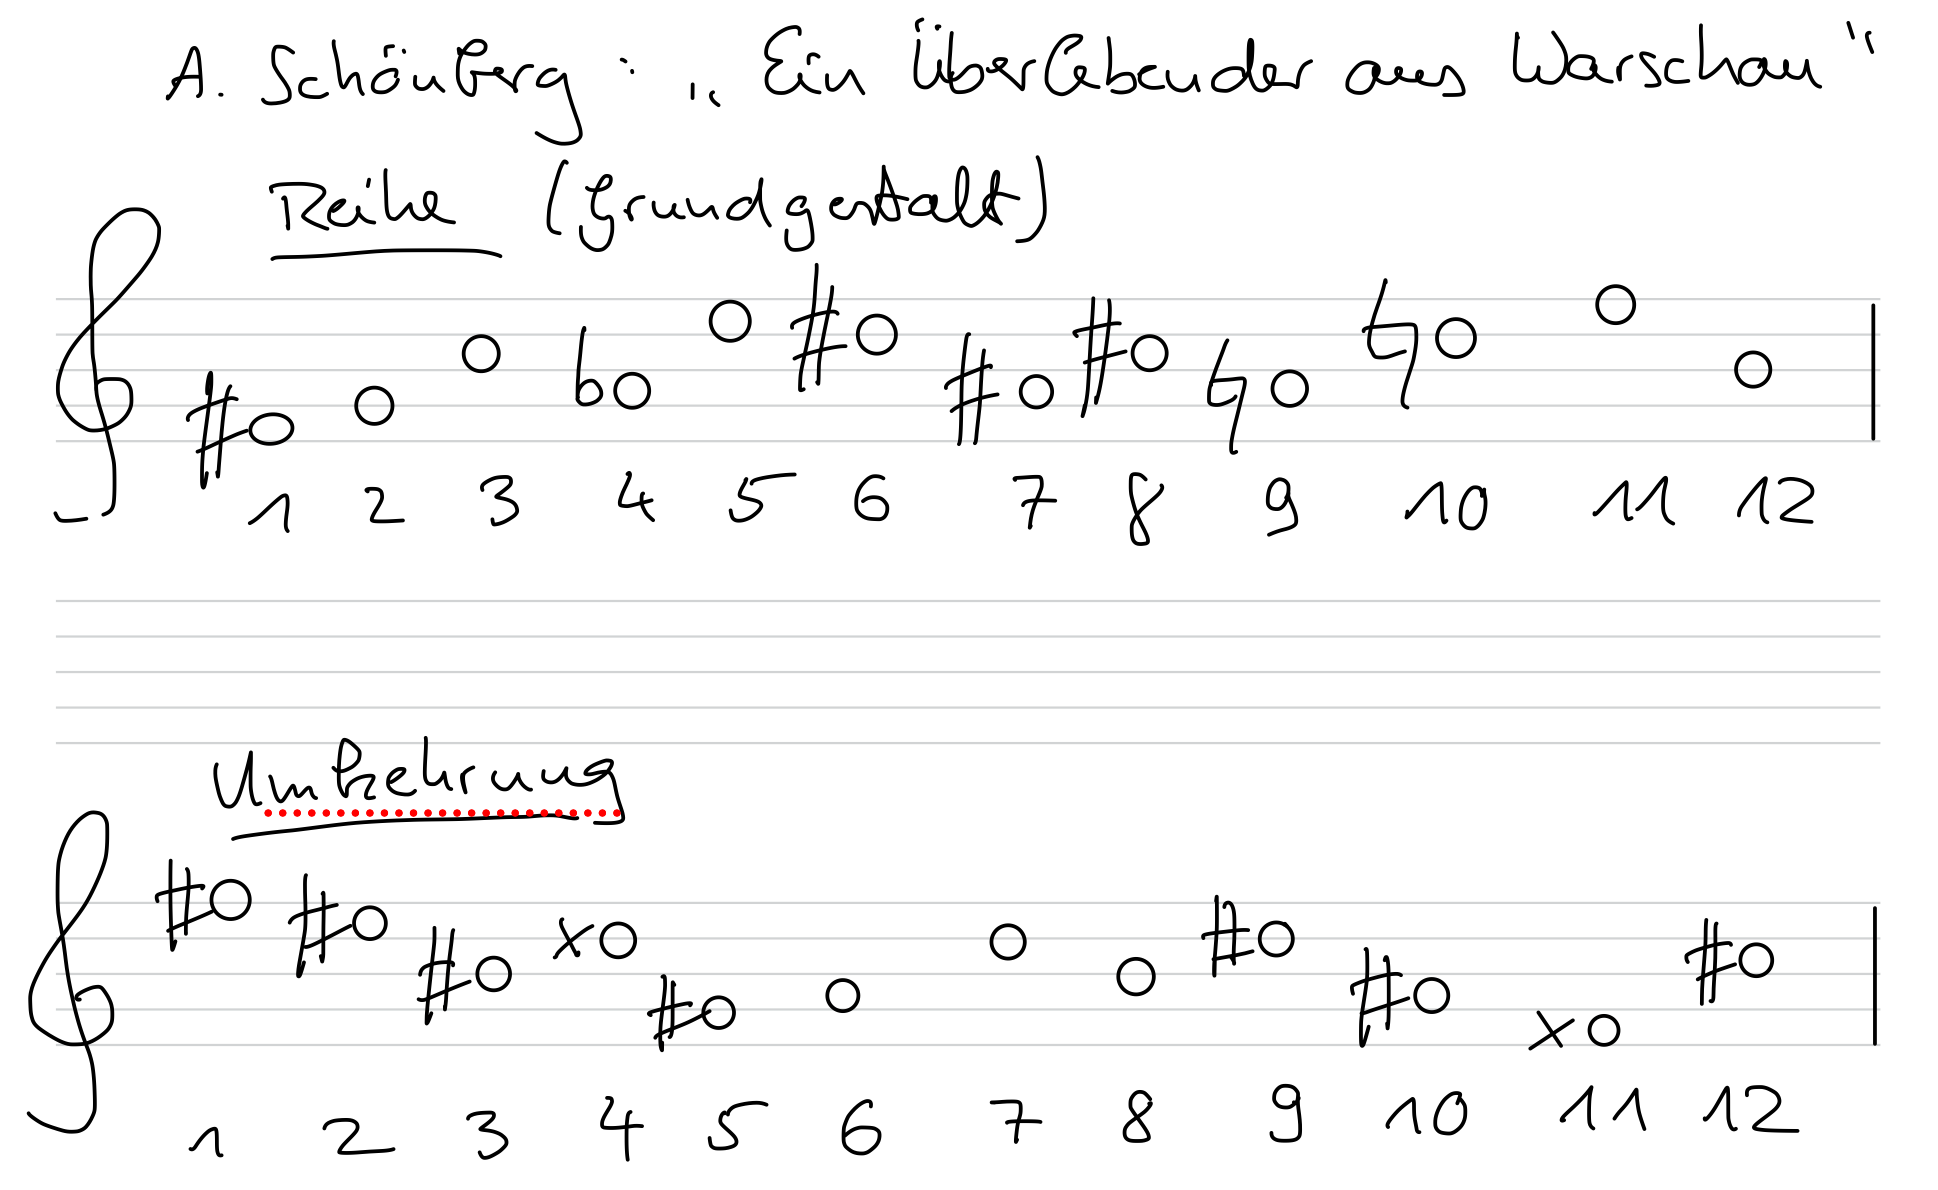 A. Schönberg: „Ein Überlebender aus Warschau"
Reihe (Grundgestalt)
1 2 3 4 5 6 7 8 9 10 11 12
Umkehrung
1 2 3 4 5 6 7 8 9 10 11 12